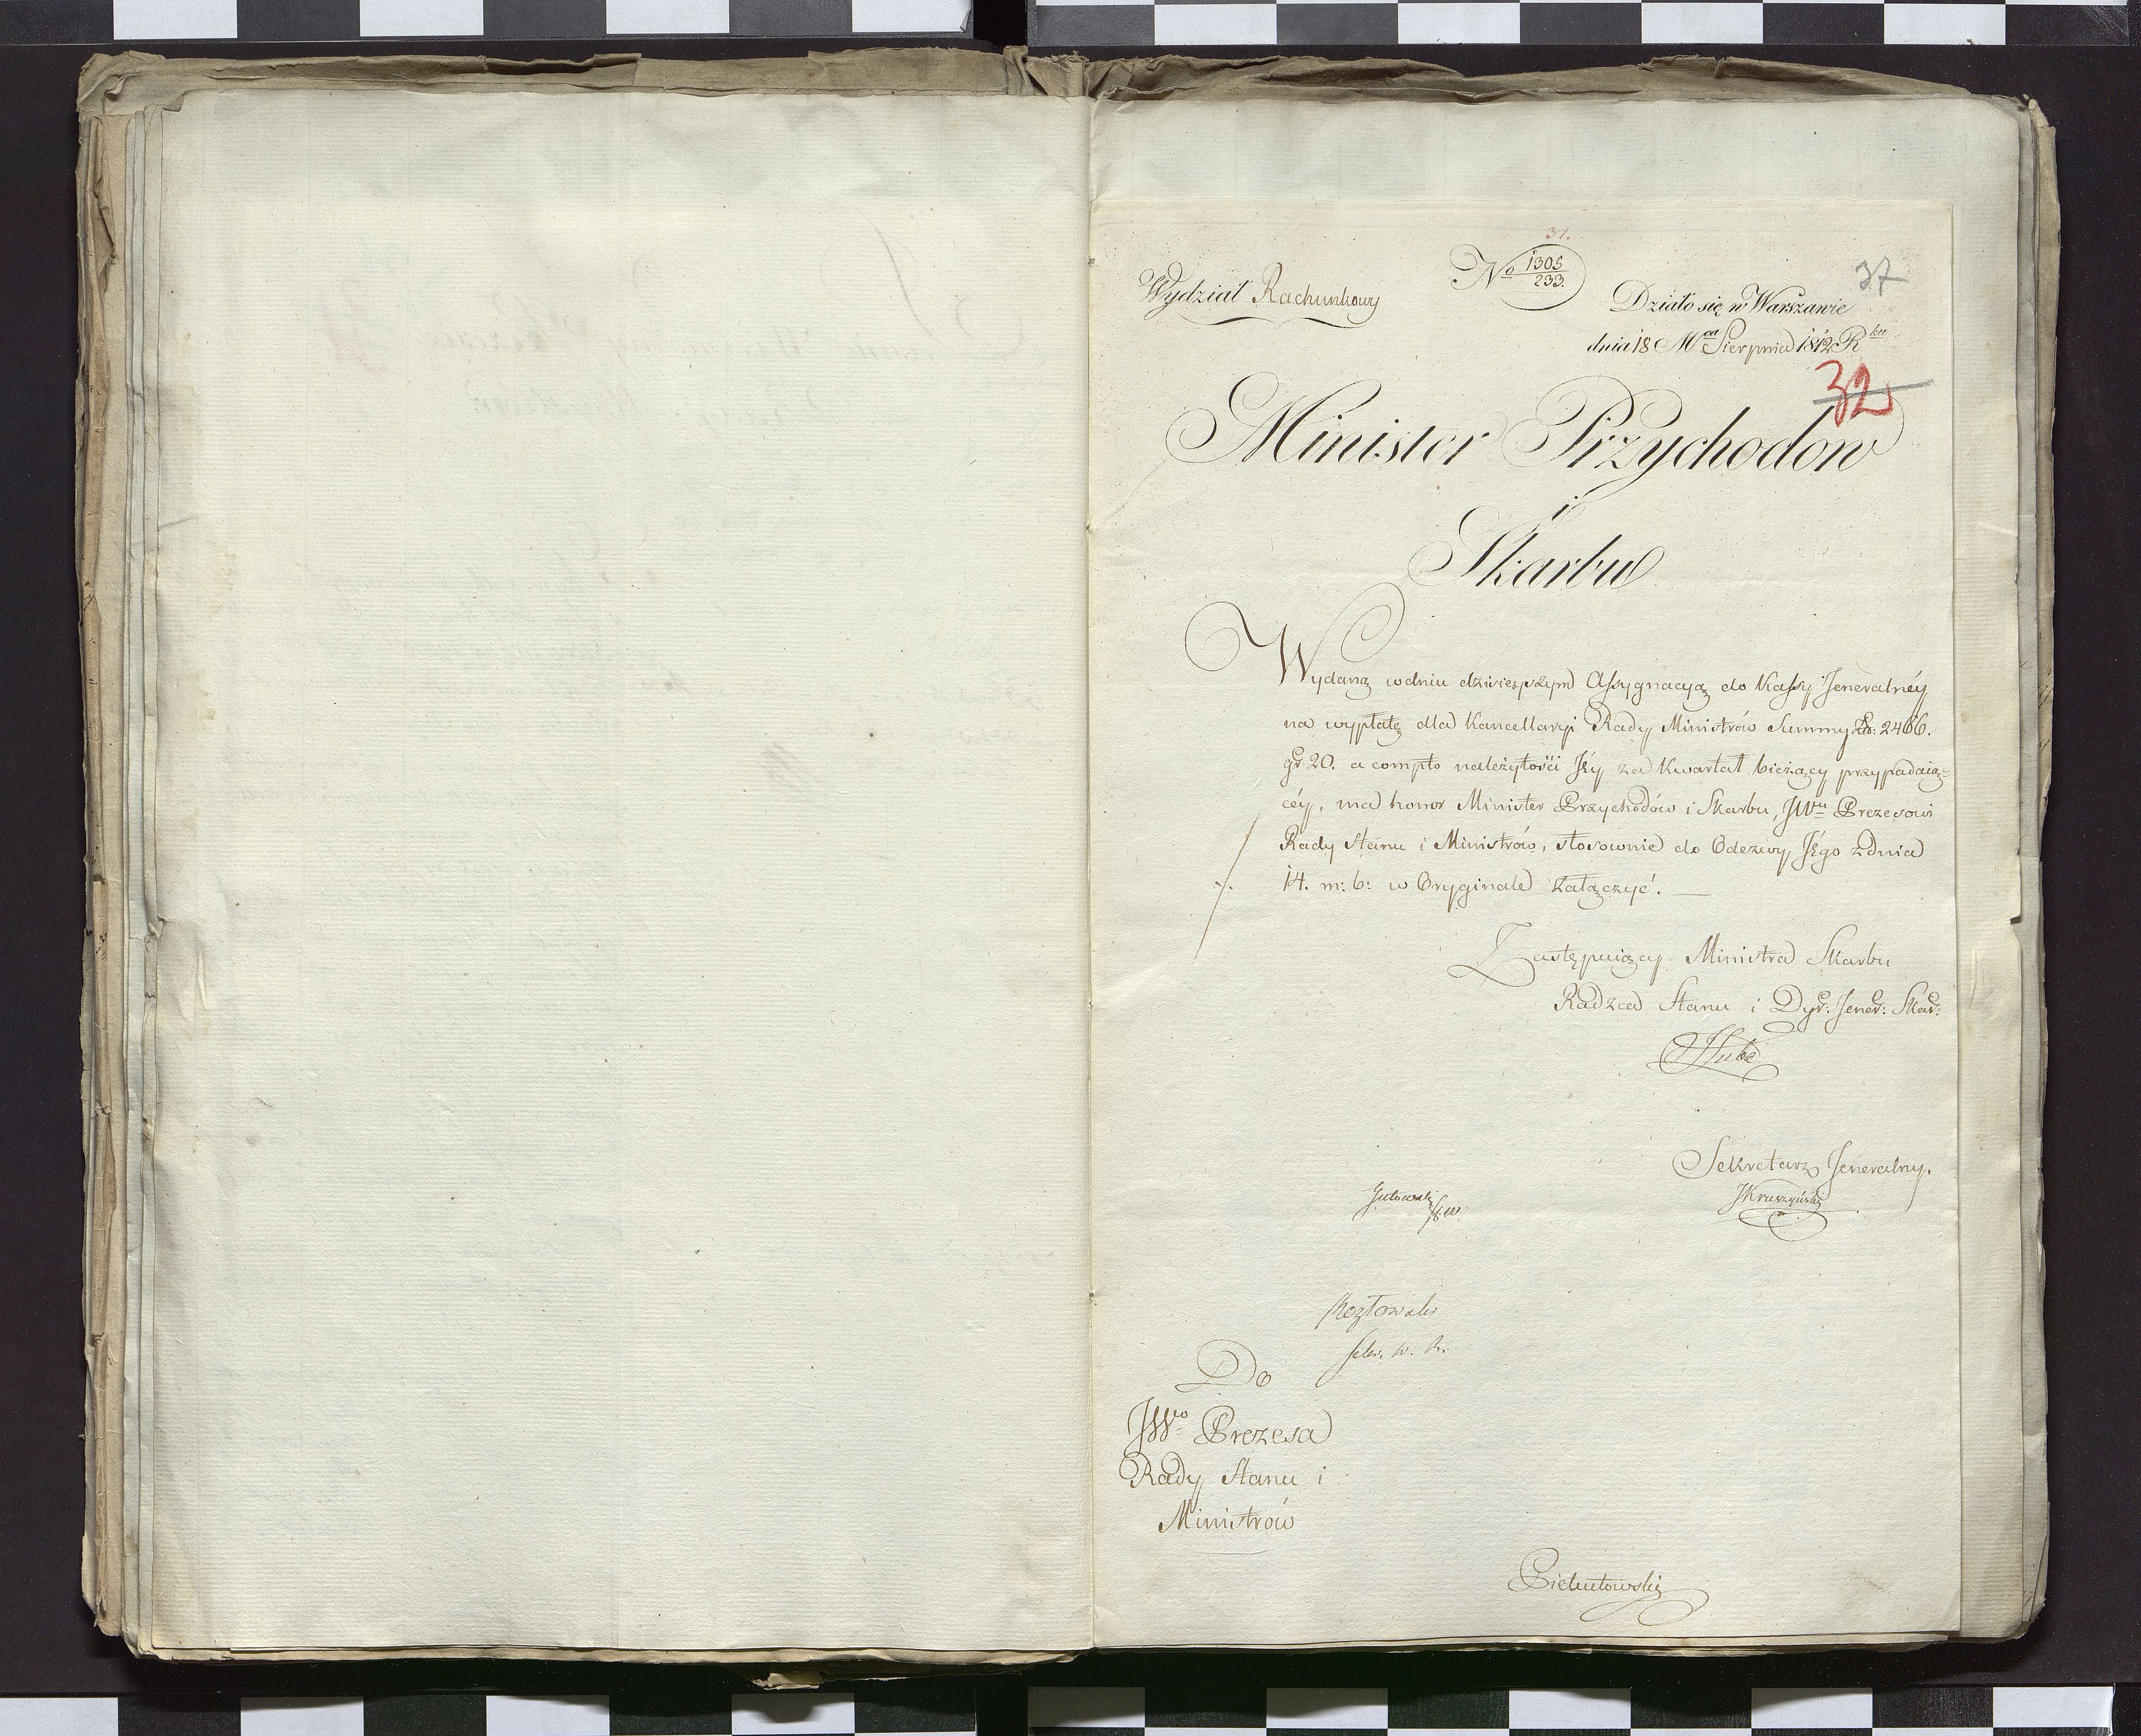 31.
Wydział Rachunkowy
No 1305/233.
37
Działo się w Warszawie
dnia 18 Mca Sierpnia 1812 Rku
32
Minister Przychodow
i
Skarbu
Wydaną w dniu dzisieyszym Assygnacyą do Kassy Jeneralnéy
na wypłatę dla Kancellaryi Rady Ministrów Summy Zło: 2466.
gr: 20. a compto należytości Jéy za kwartał bieżący przypadaią-
céy, ma honor Minister Przychodów i Skarbu, JWu Prezesowi
Rady Stanu i Ministrów, stosownie do Odezwy Jégo z dnia
14. m: b: w Oryginale załączyć.
Zastępuiący Ministra Skarbu
Radzca Stanu i Dyr: Jener: Skar:
Hube
Sekretarz Jeneralny.
JKruszyński
Gutowski
Kozłowski
Sekr. W. R.
Do
JWo Prezesa
Rady Stanu i
Ministrów